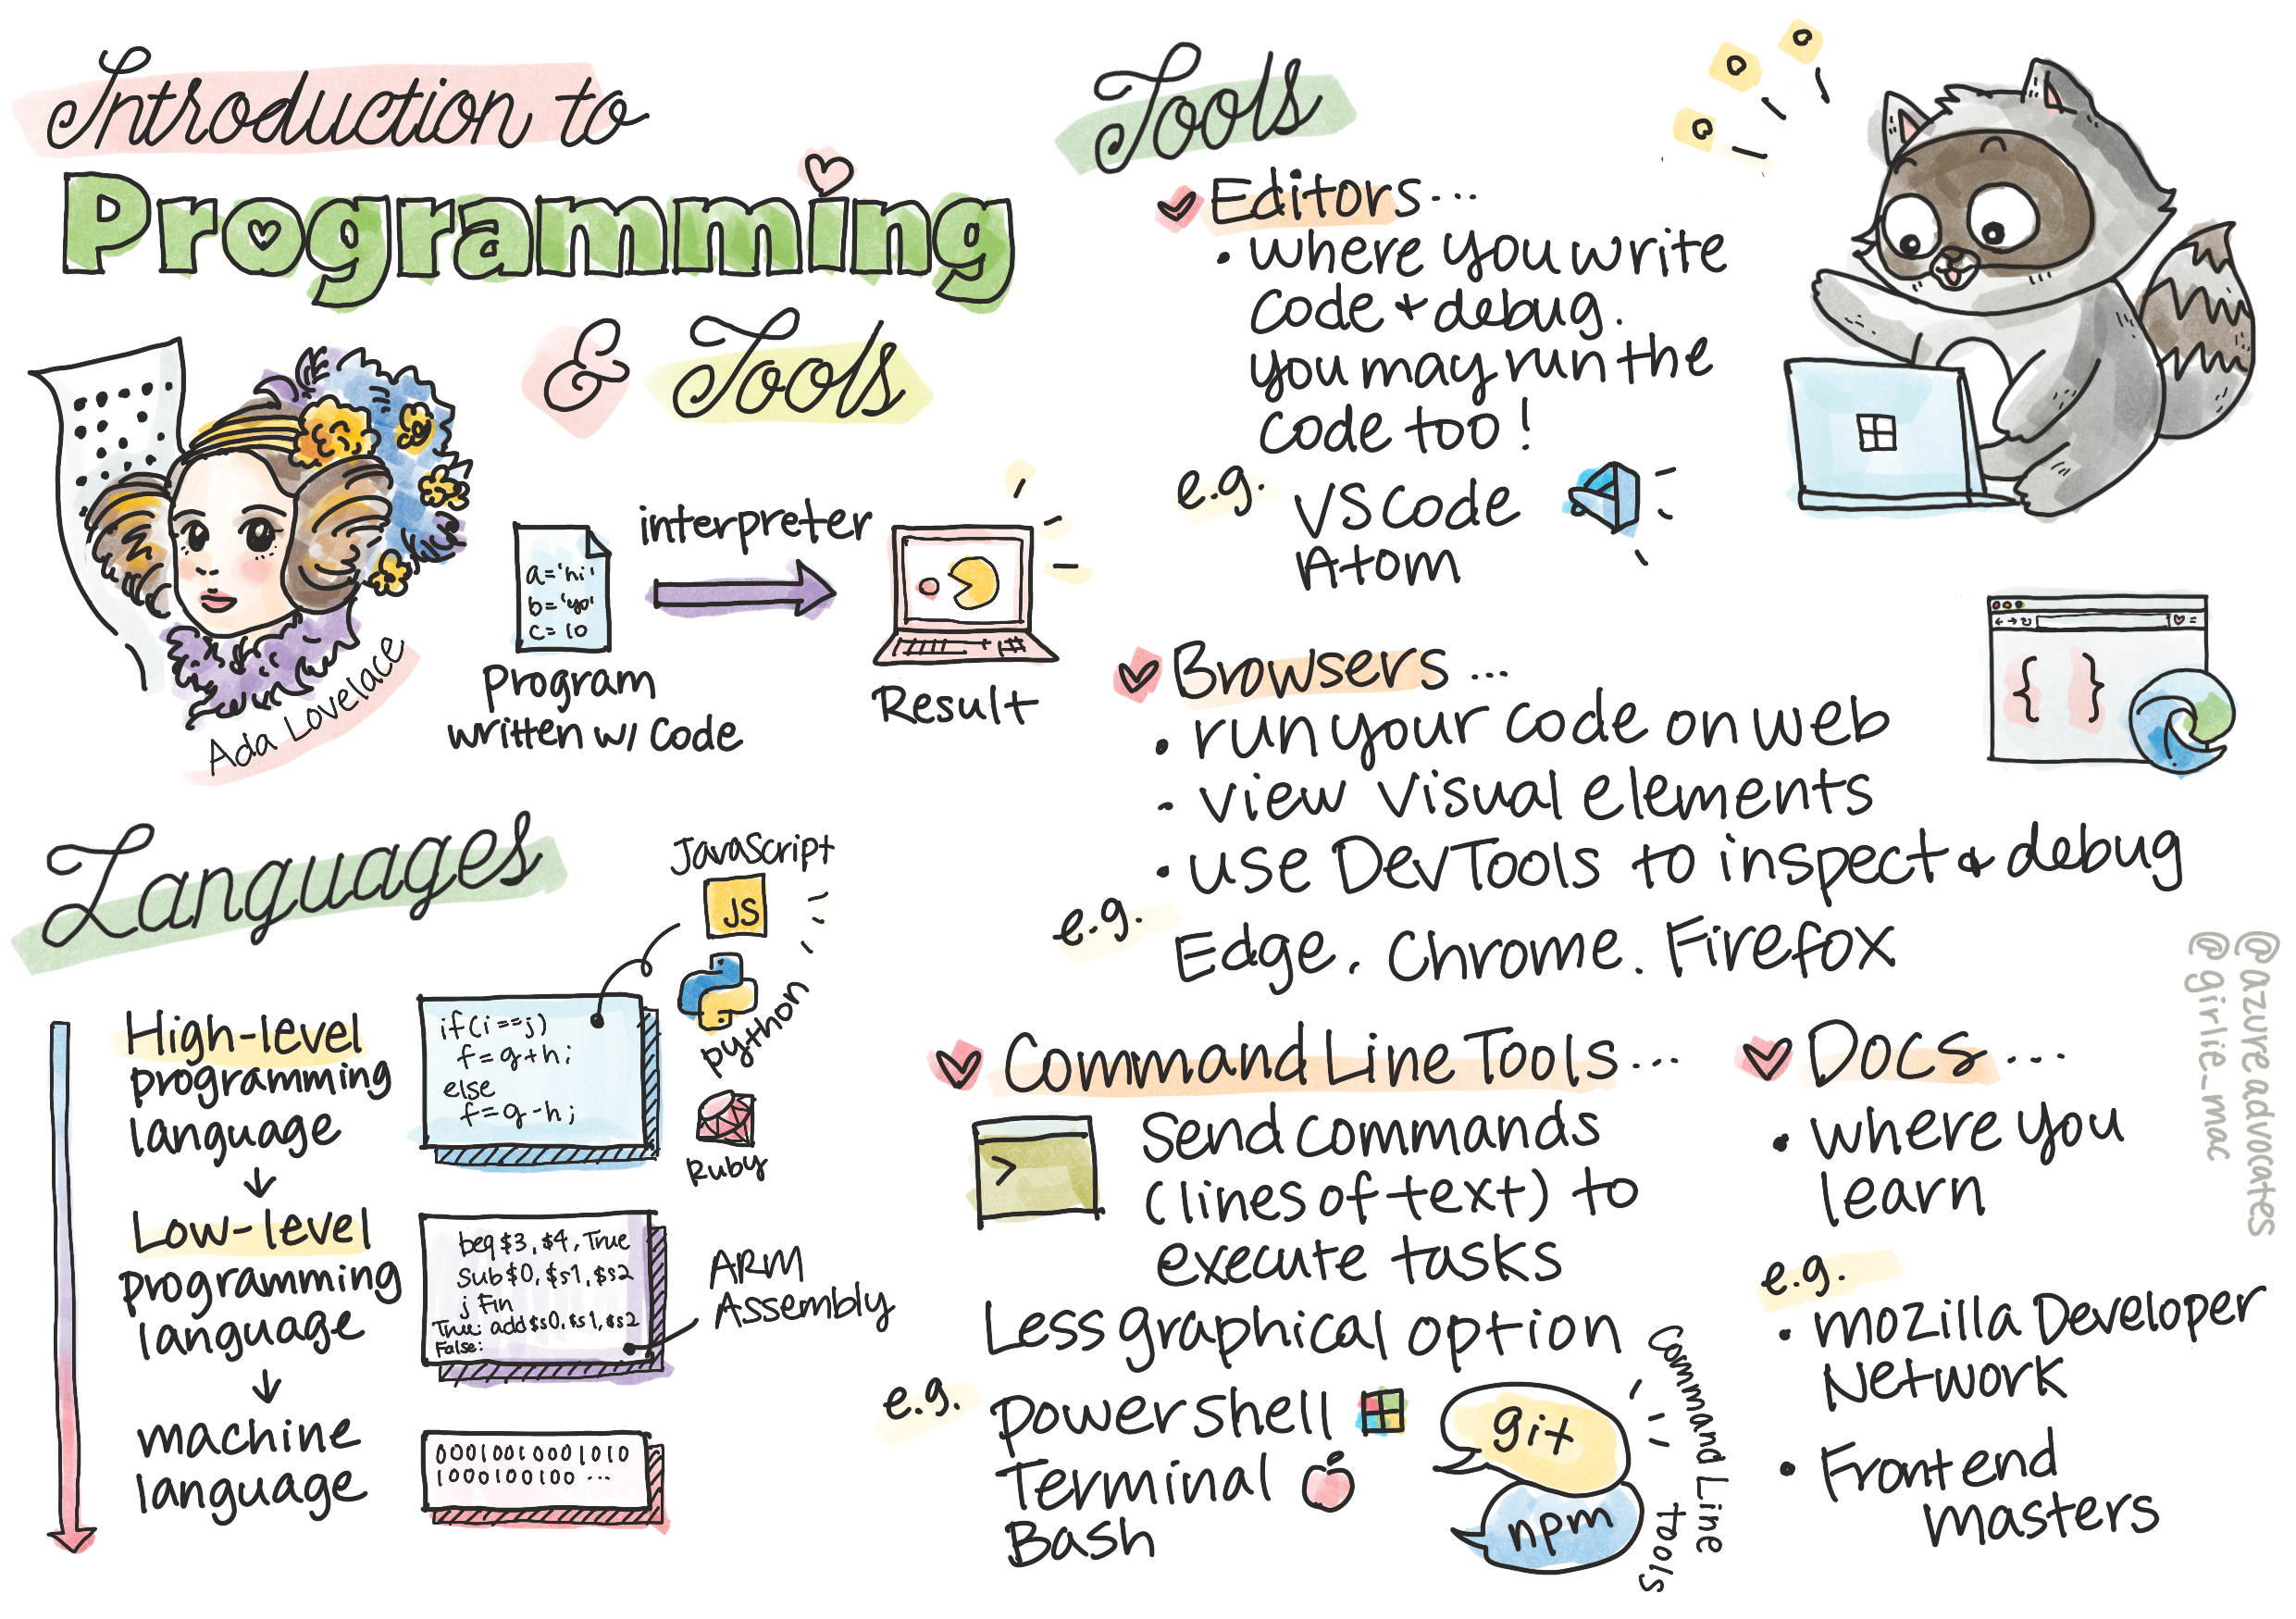 Introduction to
Programming
& Tools
a='hi'
b='yo'
c=10
interpreter
Program
written w/ code
Result
Ada Lovelace
Languages
High-level
programming
language
Low-level
programming
language
machine
language
if(i==j)
f=g+h;
else
f=g-h;
JavaScript
JS
python
Ruby
beq $3, $4, True
Sub $0, $s1, $s2
j Fin
True: add $s0, $s1, $s2
False:
ARM
Assembly
00010010001010
1000100100 ...
Tools
Editors...
• where you write
code + debug.
you may run the
code too!
e.g.
VS Code
Atom
Browsers...
• run your code on web
• view visual elements
• use DevTools to inspect & debug
e.g.
Edge. Chrome. Firefox
{ }
Command Line Tools...
>
Send commands
(lines of text) to
execute tasks
Less graphical option
e.g.
powershell
Terminal
Bash
git
npm
Command Line
tools
Docs...
• where you
learn
e.g.
• mozilla Developer
Network
• Frontend
masters
@azureadvocates
@girlie_mac